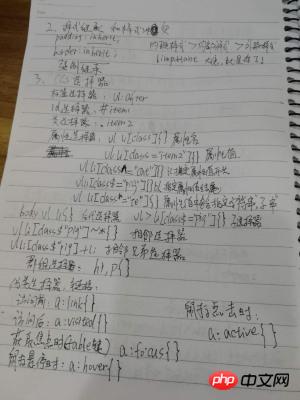 2、样式继承 和样式
padding: inherit; 内联样式 > 内部样式 > 外部样式
border: inherit; !important
强制继承
3、 选择器
标签选择器 ul
id选择器: #item1
类选择器: .item2
属性选择器: ul li[class]{} 属性名
ul li[class="item2"]{} 属性值
ul li[class^="cat"]{} 以指定属性值开头
ul li[class$="pig"]{} 以指定属性值结尾
ul li[class*="te"]{}
body ul li{} 后代选择器 ul>li[class$="pig"]{} 子选择器
ul li[class$="pig"]~*{} 相邻选择器
ul li[class$="pig"]+li 相邻兄弟选择器
群组选择器: h1, p{}
伪类选择器, 链接:
访问前: a:link{} 鼠标点击时:
访问后: a:visited{} a:active{}
获取焦点时(table键) a:focus{}
鼠标悬停时: a:hover{}
php 中文网